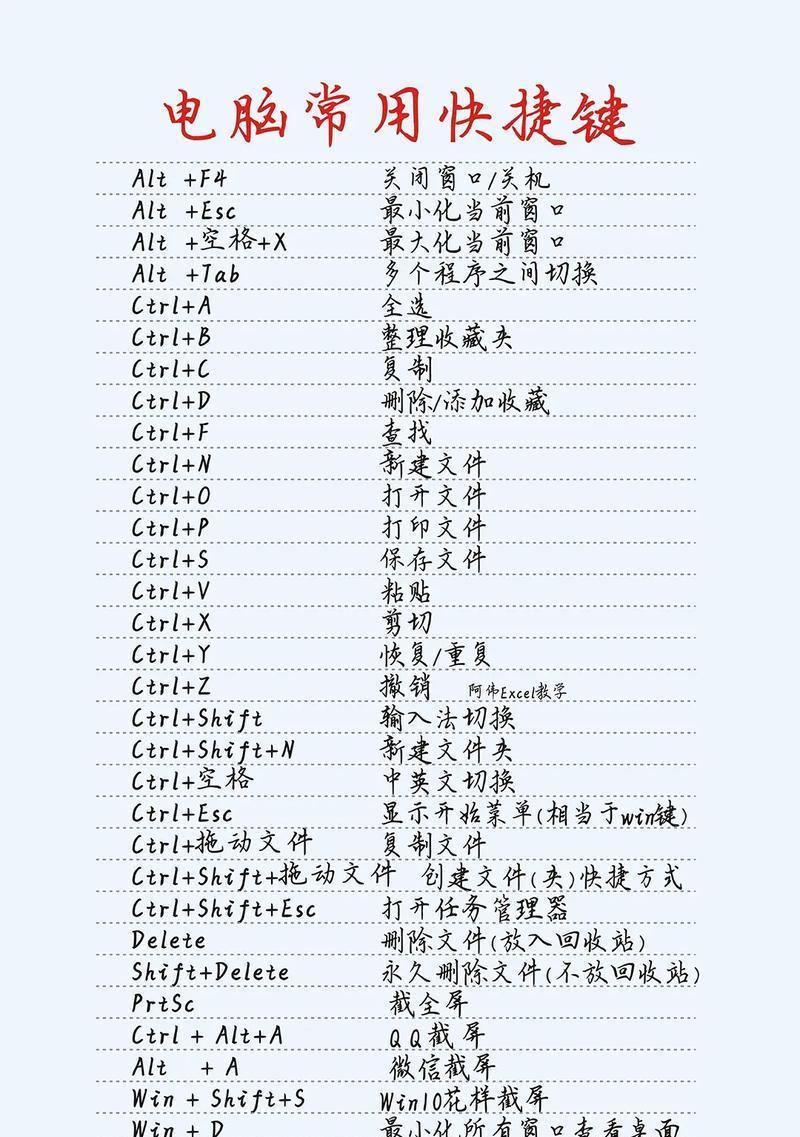 电脑常用快捷键
Alt +F4 关闭窗口/关机
Alt +Esc 最小化当前窗口
Alt +空格+X 最大化当前窗口
Alt +Tab 多个程序之间切换
Ctrl+A 全选
Ctrl+B 整理收藏夹
Ctrl+C 复制
Ctrl+D 删除/添加收藏
Ctrl+F 查找
Ctrl+N 新建文件
Ctrl+O 打开文件
Ctrl+P 打印文件
Ctrl+S 保存文件
Ctrl+V 粘贴
Ctrl+X 剪切
Ctrl+Y 恢复/重复
Ctrl+Z 撤销 阿伟Excel教学
Ctrl+Shift 输入法切换
Ctrl+Shift+N 新建文件夹
Ctrl+空格 中英文切换
Ctrl+Esc 显示开始菜单(相当于win键)
Ctrl+拖动文件 复制文件
Ctrl+Shift+拖动文件 创建文件(夹)快捷方式
Ctrl+Shift+Esc 打开任务管理器
Delete 删除文件(放入回收站)
Shift+Delete 永久删除文件(不放回收站)
PrtSc 截全屏
Ctrl + Alt+A QQ截屏
Alt + A 微信截屏
Win + Shift+S Win10花样截屏
Win + D 最小化所有窗口查看桌面